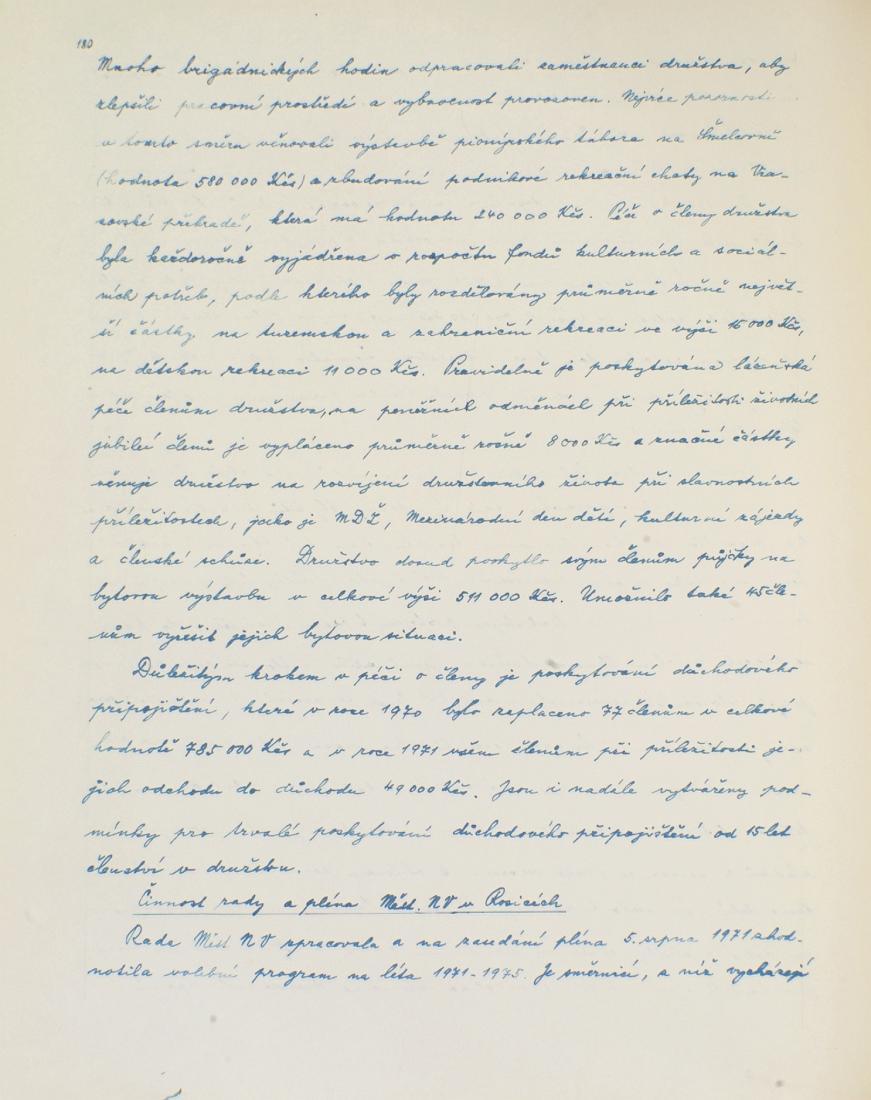 180
Mnoho brigádnických hodin odpracovali zaměstnanci družstva, aby
zlepšili pracovní prostředí a vybavenost provozoven. Nejvíce pozornosti
v tomto směru věnovali výstavbě pionýrského tábora na Šmelcovně
(hodnota 580 000 Kčs) a zbudování podnikové rekreační chaty na Vra-
novské přehradě, která má hodnotu 240 000 Kčs. Péče o členy družstva
byla každoročně vyjádřena v rozpočtu fondů kulturních a sociál-
ních potřeb, podle kterého byly rozdělovány průměrně ročně největ-
ší částky na tuzemskou a zahraniční rekreaci ve výši 15 000 Kčs,
na dětskou rekreaci 11 000 Kčs. Pravidelně je poskytována lázeňská
péče členům družstva, na peněžních odměnách při příležitosti životních
jubileí členů je vypláceno průměrně ročně 8 000 Kčs a značné částky
věnuje družstvo na rozvíjení družstevního života při slavnostních
příležitostech, jako je MDŽ, Mezinárodní den dětí, kulturní zájezdy
a členské schůze. Družstvo dosud poskytlo svým členům půjčky na
bytovou výstavbu v celkové výši 511 000 Kčs. Umožnilo také 45 čle-
nům vyřešit jejich bytovou situaci.
Důležitým krokem v péči o členy je poskytování důchodového
připojištění, které v roce 1970 bylo zaplaceno 77 členům v celkové
hodnotě 785 000 Kčs a v roce 1971 všem členům při příležitosti je-
jich odchodu do důchodu 49 000 Kčs. Jsou i nadále vytvářeny pod-
mínky pro trvalé poskytování důchodového připojištění od 15 let
členství v družstvu.
Činnost rady a pléna Měst. NV v Rosicích
Rada Měst NV zpracovala a na zasedání pléna 5. srpna 1971 zhod-
notila volební program na léta 1971-1975. Je směrnicí, z níž vycházejí